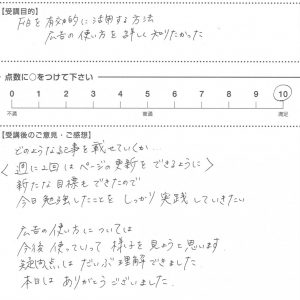 【受講目的】
FBを有効的に活用する方法
広告の使い方を詳しく知りたかった
点数に○をつけて下さい
0 1 2 3 4 5 6 7 8 9 10
不満 普通 満足
【受講後のご意見・ご感想】
どのような記事を載せていくか…
〈週に2回はページの更新をできるように〉
新たな目標もできたので
今日勉強したことをしっかり実践していきたい
広告の使い方については
今後使っていって様子を見ようと思います。
疑問点はだいぶ理解できました。
本日はありがとうございました。